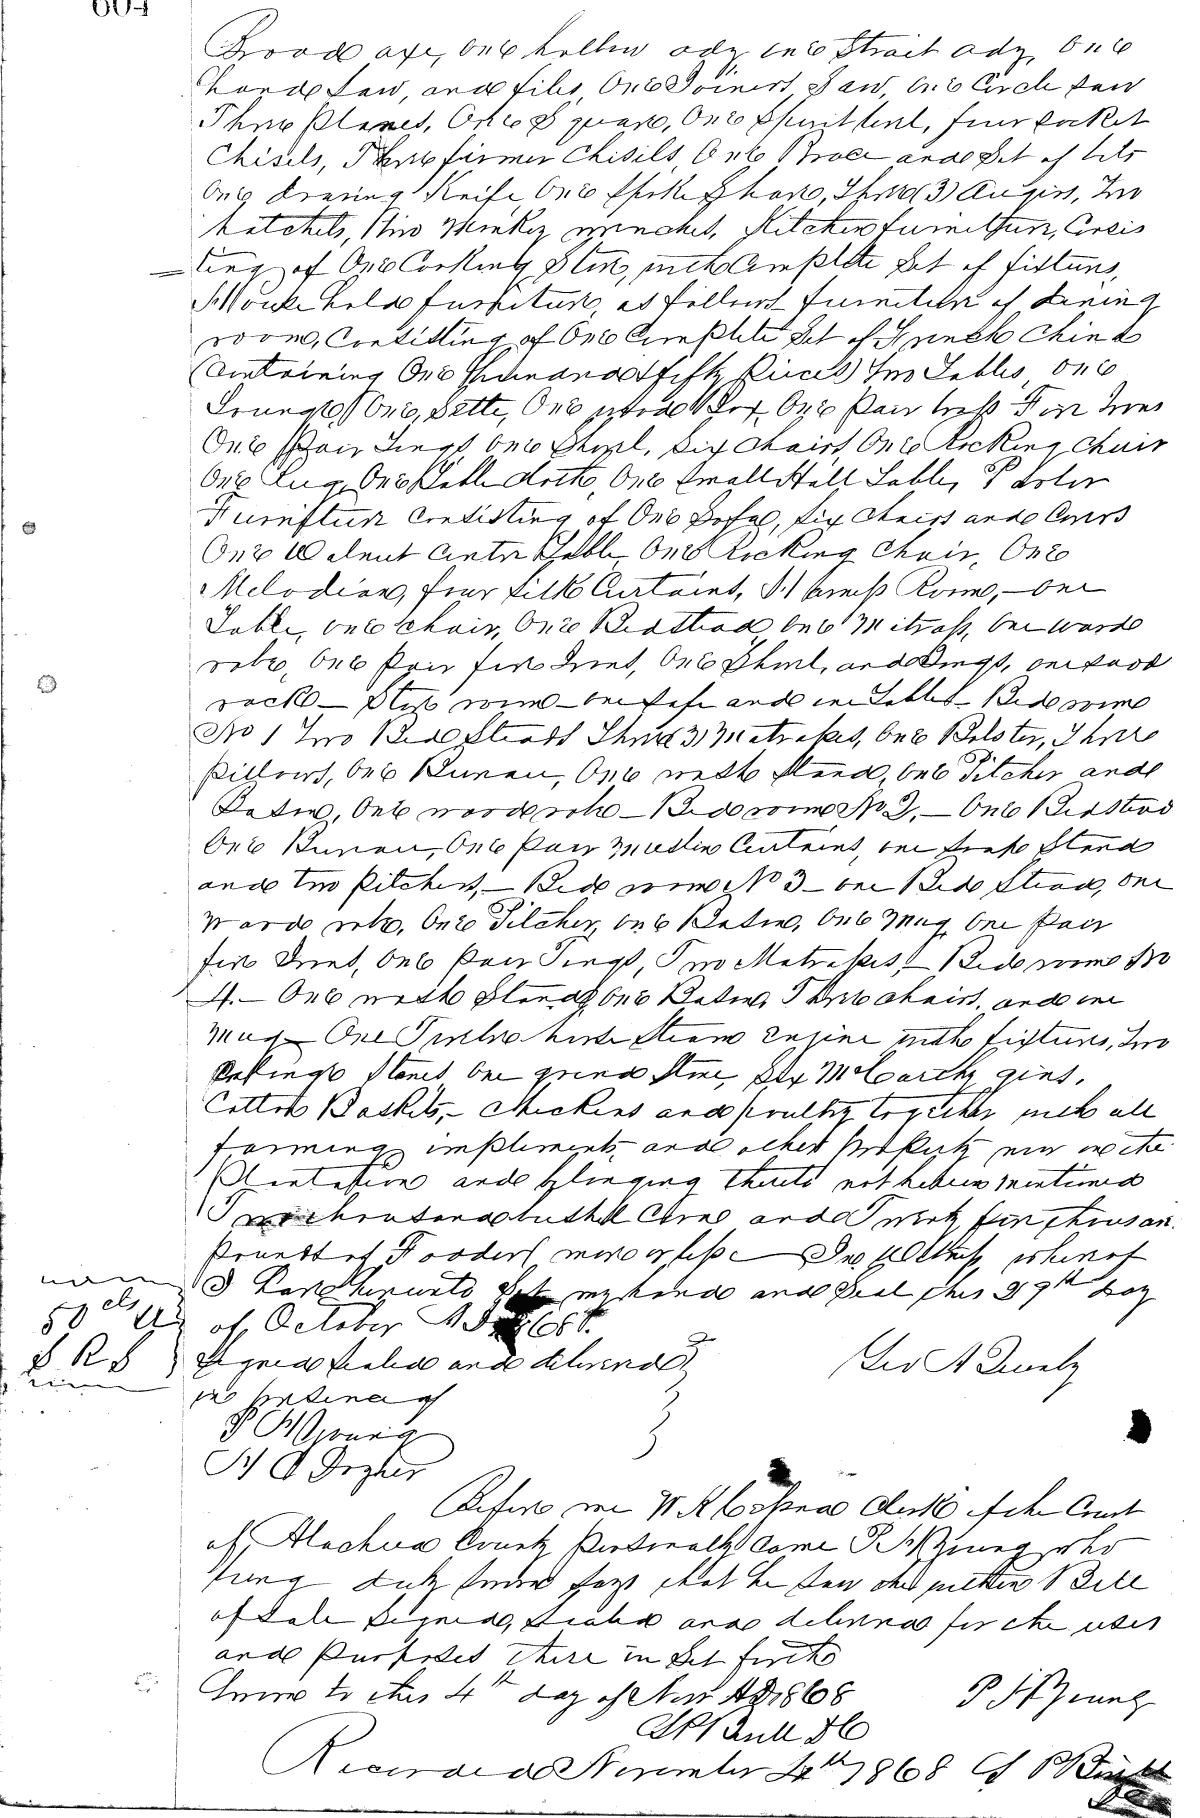 604
Broad axe, One hollow adz, one Strait adz, One
hand Saw, and files, One Joiners Saw, One Circle Saw
Three Planes, One Square, One Spirit level, four socket
Chisels, Three firmer Chisils, One Brace and Set of bits
One Drawing Knife One Spoke Shave, Three (3) Augers, Two
hatchets, Two Monkey wrenches, Kitchen furniture, Consis
ting of One Cooking Stove, with Complete Set of fixtures,
House hold furniture, as follows furniture of dining
room, Consisting of One Complete Set of French China
(Containing One hundred & fifty pieces) two Tables, one
Lounge, One Sette, One wood Box, One pair brass Fire Irons
One pair Tongs, one Shovel, Six Chairs One Rocking Chair
One Rug, One Table cloth, One Small Hall Table, Parlor
Furniture consisting of One Sofa, Six Chairs and Covers
One Walnut Center Table, One Rocking Chair, One
Melodian, four Silk Curtains, Harness Room, — one
Table, one chair, One Bedstead one Mattrass, One ward
robe, One pair fire Irons, One Shovel, and Tongs, one
rack — Store room — one Safe and one Table — Bed room
No 1 Two Bed Steads Three (3) Matrasses, One Bolster, Three
pillows, One Bureau, One wash Stand, One Pitcher and
Basin, One wardrobe — Bed room No 2, — One Bedstead
One Bureau, One pair Muslin Curtains, one Stand
and two pitchers, — Bed room No 3 — one Bed Stead, one
Ward robe, One Pitcher, one Basin, One Mug One pair
fire Irons, One pair Tongs, Two Matrasses, — Bed room No
4. — One wash Stand, One Basin, Three chairs, and one
Mug — One Twelve horse Steam Engine with fixtures, Two
Stones One grind Stone, Six McCarthy gins,
Cotton Baskets, — Chickens and poultry together with all
farming implements, and other property now on the
Plantation and belonging thereto not herein mentioned
Two thousand bushels Corn and Twenty five thousan.
pounds of Fodder more or less — In Witness whereof
I have hereunto Set my hand and Seal this 29th day
of October A D 1868.
50 cts
I R S
Signed Sealed and delivered
in presence of
Geo A
P H Young
H C Dozier
Before me W K Clerk of the Court
of Alachua County personally came P H Young who
being duly sworn says that he saw the within Bill
of Sale Signed, Sealed and delivered for the uses
and purposes there in Set forth
Sworn to this 4th day of Nov AD 1868 P H Young
D C
Recorded November 4th 1868